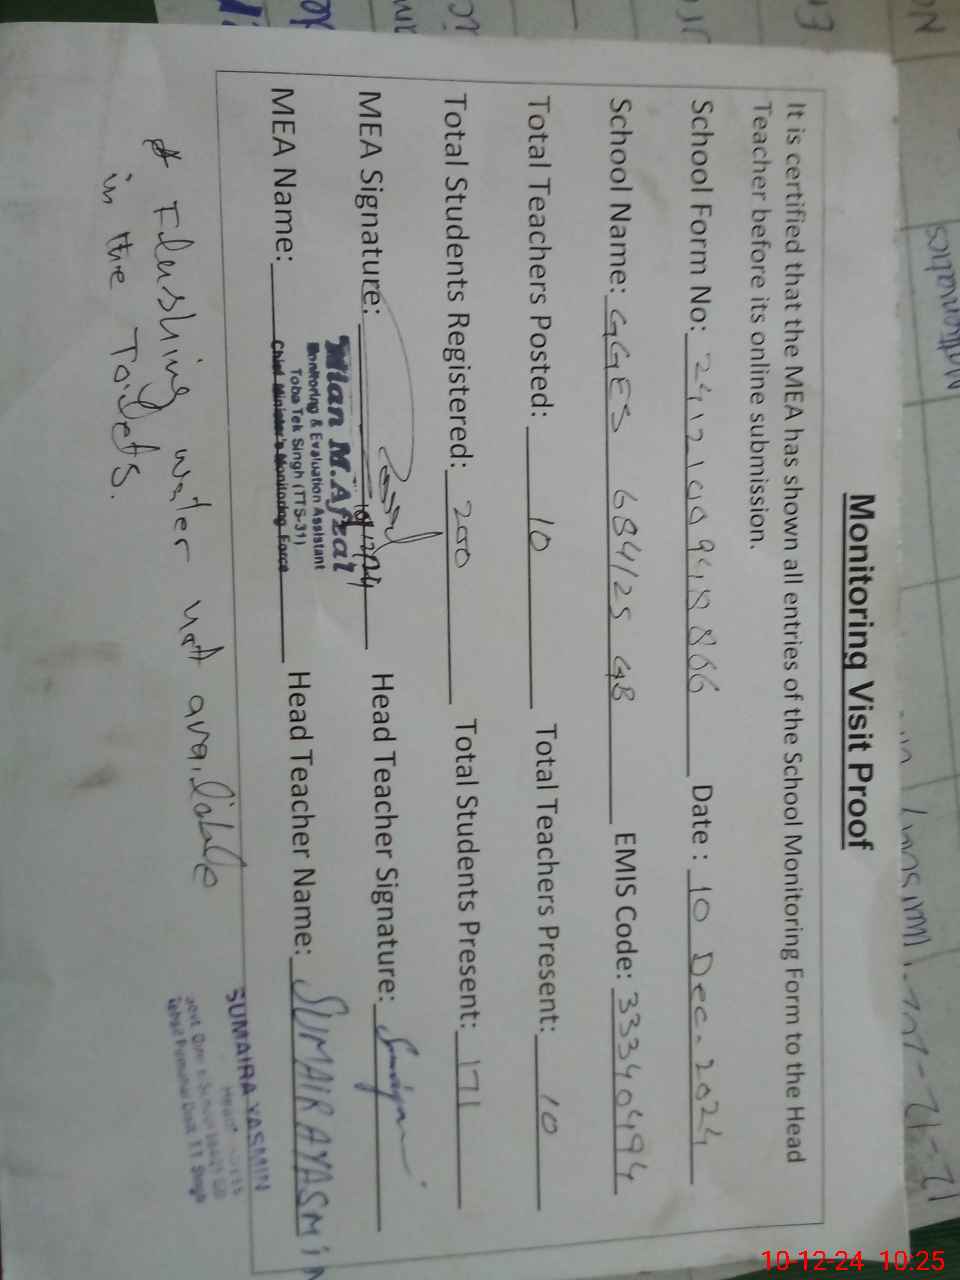 Monitoring Visit Proof
It is certified that the MEA has shown all entries of the School Monitoring Form to the Head
Teacher before its online submission.
School Form No: 24121009418866 Date : 10 Dec. 2024
School Name: GGES 684/25 GB EMIS Code: 33340494
Total Teachers Posted: 10 Total Teachers Present: 10
Total Students Registered: 200 Total Students Present: 171
MEA Signature: Head Teacher Signature:
Mian M.Afzal
Monitoring & Evaluation Assistant
Toba Tek Singh (TTS-31)
Chief Minister's Monitoring Force
MEA Name: Head Teacher Name: SUMAIRA YASMIN
SUMAIRA YASMIN
* Flushing water not available
in the Toilets.
Mathematics
10-12-24 10:25